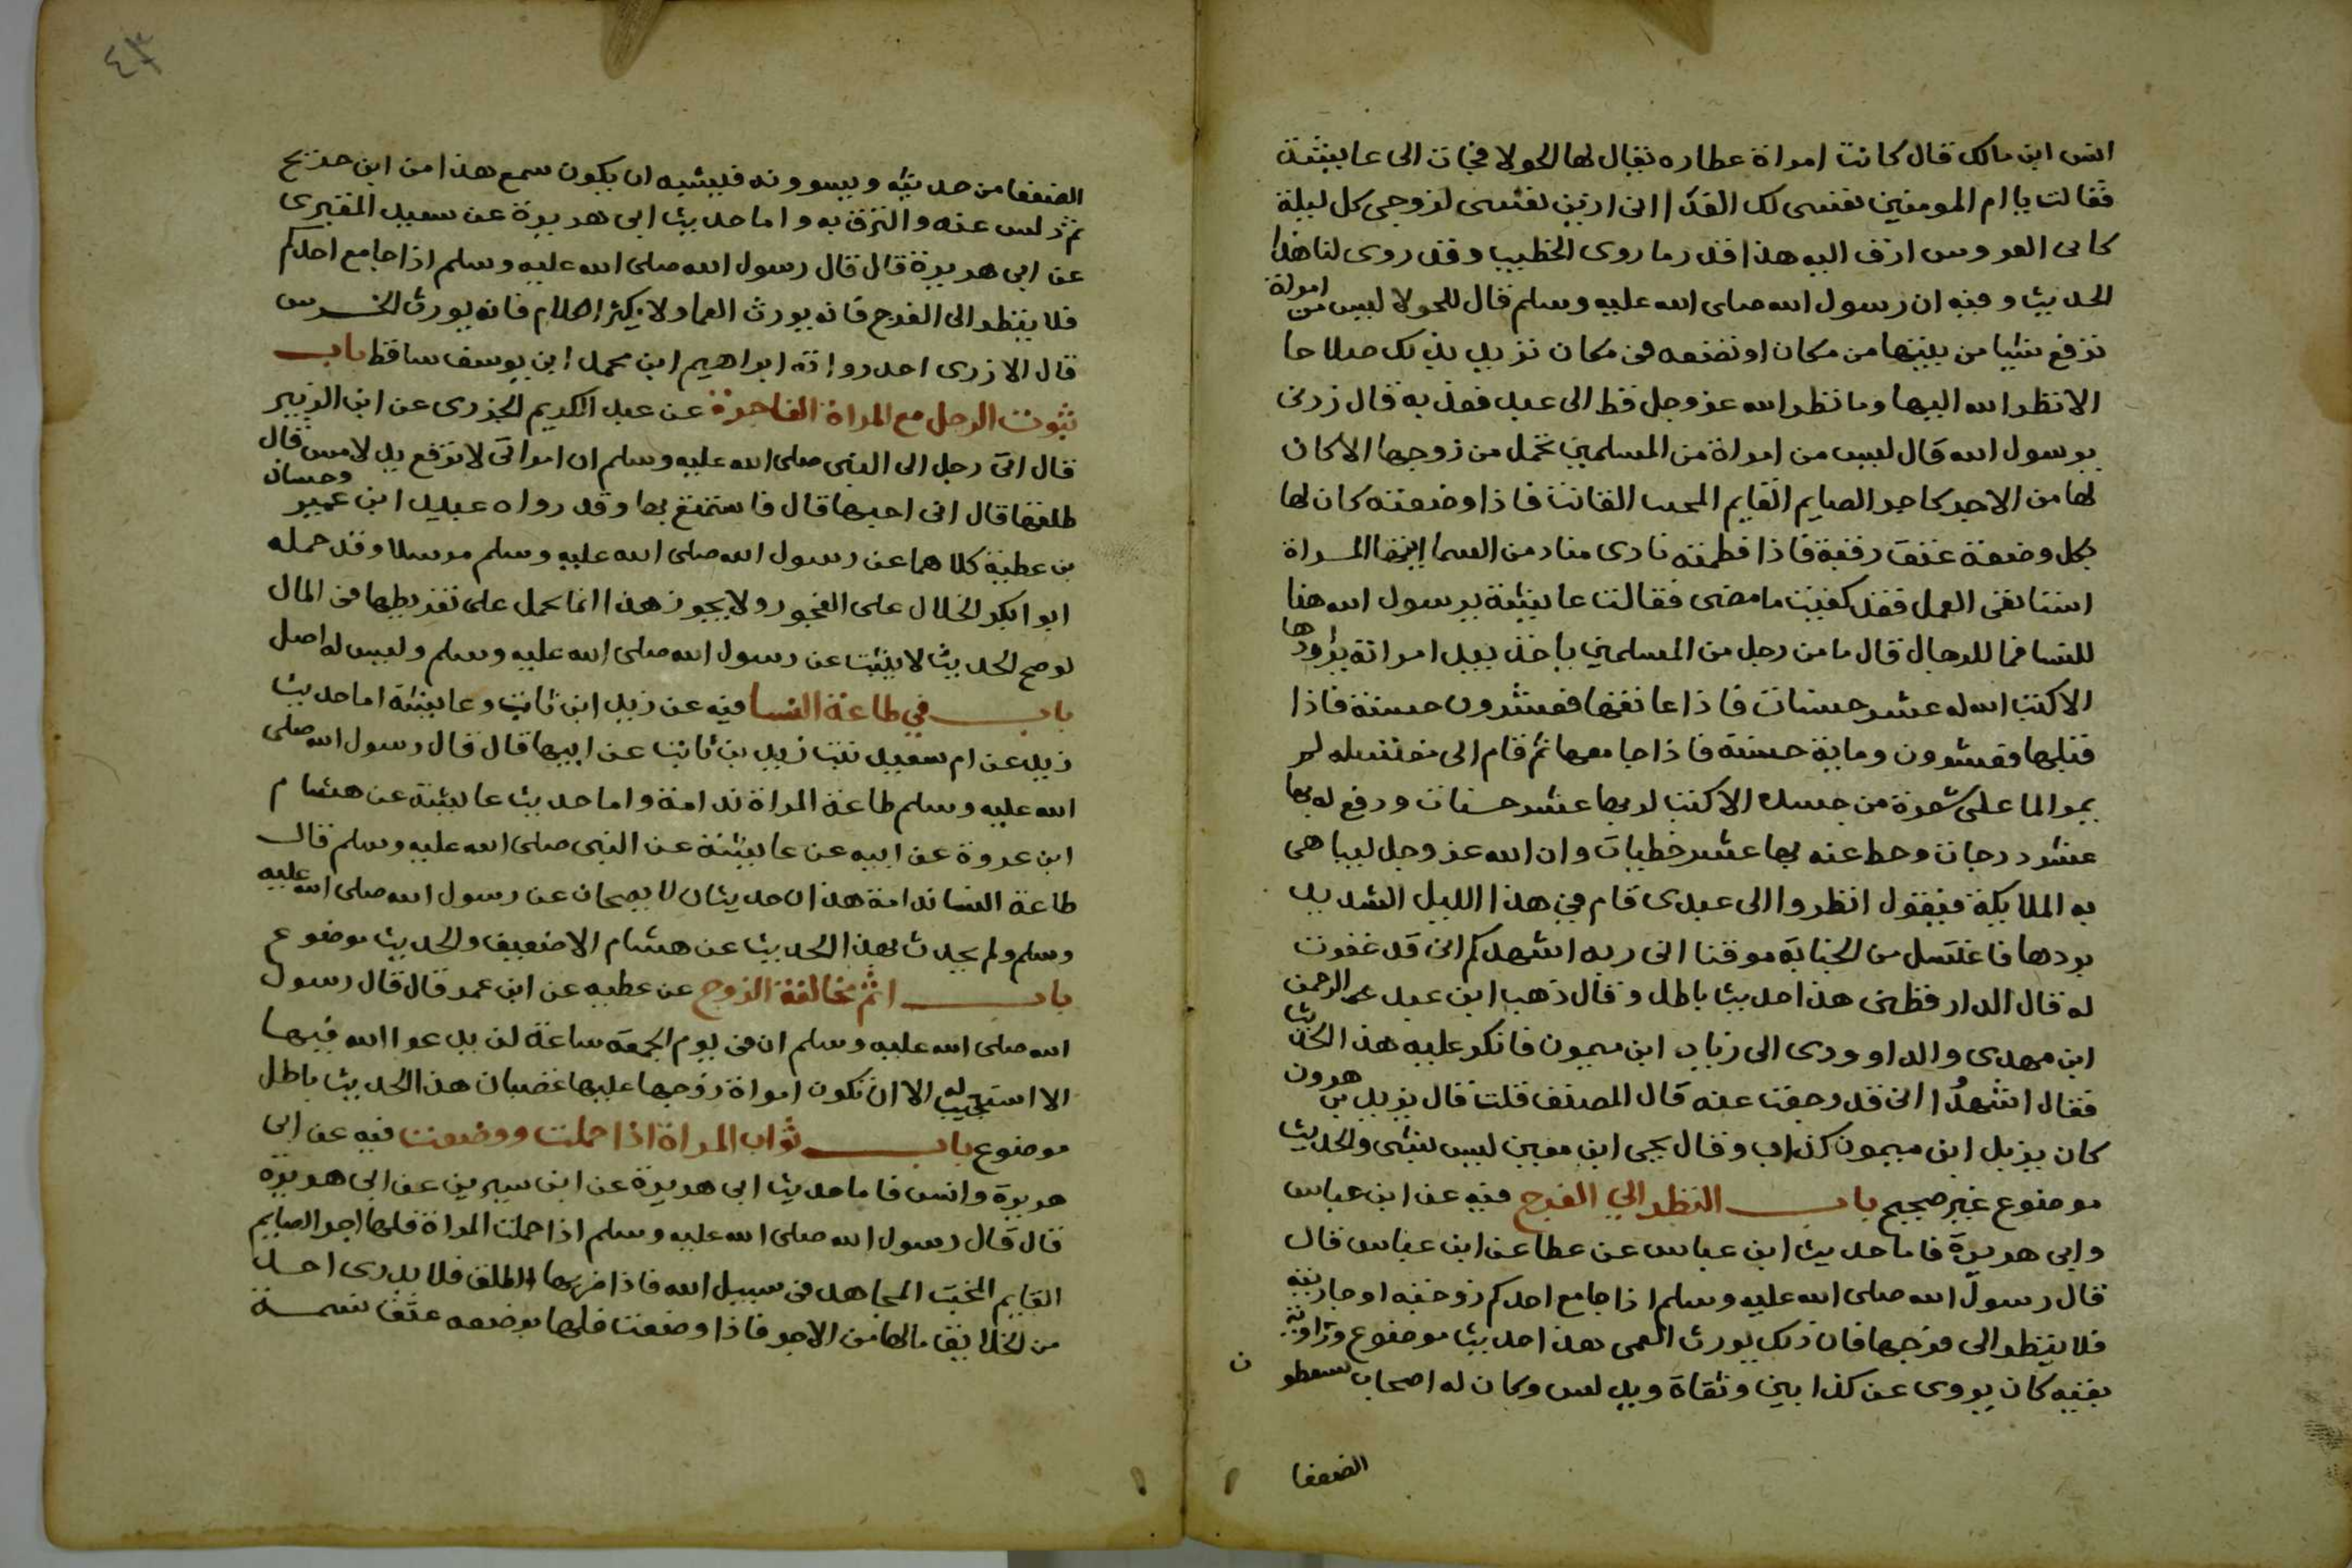 انس ابن مالك قال كانت امراة عطاره يقال لها الحولا فجات الى عايشة
فقالت يا ام المومنين نفسى لك الفدا انى ازين نفسى لزوجى كل ليلة
كانى العروس ازف اليه هذا قدر ما روى الخطيب وقد روى لنا هذا
الحديث وفيه ان رسول الله صلى الله عليه وسلم قال للحولا ليس من امراة
ترفع شيا من بيتها من مكان او تضعه فى مكان تريد بذلك صلاحا
الا نظر الله اليها وما نظر الله عز وجل قط الى عبد فعذبه قال زدنى
يرسول الله قال ليس من امراة من المسلمين تحمل من زوجها الا كان
لها من الاجر كاجر الصايم القايم المخبت القانت فاذا وضعته كان لها
بكل وضعة عتق رقبة فاذا فطمته نادى مناد من السما ايتها المراة
استانفى العمل فقد كفيت ما مضى فقالت عايشة يرسول الله هذا
للنسا فما للرجال قال ما من رجل من المسلمين ياخذ بيد امراته يراودها
الا كتب الله له عشر حسنات فاذا عانقها فعشرون حسنة فاذا
قبلها فعشرون وماية حسنة فاذا جامعها ثم قام الى مغتسله لم
يمر الما على شعرة من جسده الا كتب له بها عشر حسنات ورفع له بها
عشر درجات وحط عنه بها عشر خطيات وان الله عز وجل ليباهى
به الملايكة فيقول انظروا الى عبدى قام في هذا الليل الشديد
بردها فاغتسل من الجنابة موقنا انى ربه اشهدكم انى قد غفرت
له قال الدارقطنى هذا حديث باطل وقال ذهب ابن عبد الرحمن
ابن مهدى والداوودى الى زياد ابن ميمون فانكر عليه هذا الحديث
فقال اشهدُا انى قد رجعت عنه قال المصنف قلت قال يزيد بن هرون
كان يزيد ابن ميمون كذاب وقال يحى ابن معين ليس بشى والحديث
موضوع غير صحيح باب النظر الي الفرج فيه عن ابن عباس
وابى هريرة فاما حديث ابن عباس عن عطا عن ابن عباس قال
قال رسول الله صلى الله عليه وسلم اذا جامع احدكم زوجته او جاريته
فلا ينظر الى فرجها فان ذلك يورث العمى هذا حديث موضوع وراويه
بقيه كان يروى عن كذابين وثقاة ويدلس وكان له اصحاب يسقطون
الضعفا
٤٣
الضعفا من حديثه ويسوونه فيشبه ان يكون سمع هذا من ابن جريج
ثم دلس عنه والتزق به واما حديث ابى هريرة عن سعيد المقبرى
عن ابى هريرة قال قال رسول الله صلى الله عليه وسلم اذا جامع احدكم
فلا ينظر الى الفرج فانه يورث العما ولا يكثر الكلام فانه يورث الخرس
قال الازدى احد رواته ابراهيم ابن محمد ابن يوسف ساقط باب
ثبوت الرجل مع المراة الفاجرة عن عبد الكريم الجزرى عن ابن الزبير
قال اتى رجل الى النبى صلى الله عليه وسلم ان امراتى لا ترفع يد لامس قال
طلقها قال انى احبها قال فاستمتع بها وقد رواه عبيد ابن عمير وحسان
بن عطية كلاهما عن رسول الله صلى الله عليه وسلم مرسلا وقد حمله
ابو ابكر الخلال على الفجور ولا يجوز هذا انما يحمل على تفريطها فى المال
لو صح الحديث لا يثبت عن رسول الله صلى الله عليه وسلم وليس له اصل
باب في طاعة النسا فيه عن زيد ابن ثابت وعايشة اما حديث
زيد عن ام سعيد بنت زيد بن ثابت عن ابيها قال قال رسول الله صلى
الله عليه وسلم طاعة المراة ندامة واما حديث عايشة عن هشام
ابن عروة عن ابيه عن عايشة عن النبى صلى الله عليه وسلم قال
طاعة النسا ندامة هذان حديثان لا يصحان عن رسول الله صلى الله عليه
وسلم ولم يحدث بهذا الحديث عن هشام الا ضعيف والحديث موضوع
باب اثم مخالفة الزوج عن عطيه عن ابن عمر قال قال رسول
الله صلى الله عليه وسلم ان فى يوم الجمعة ساعة لن يدعوا الله فيها
الا استجيب له الا ان تكون امراة زوجها عليها غضبان هذا الحديث باطل
موضوع باب ثواب المراة اذا حملت ووضعت فيه عن ابى
هريرة وانس فاما حديث ابى هريرة عن ابن سيرين عن ابى هريرة
قال قال رسول الله صلى الله عليه وسلم اذا حملت المراة فلها اجر الصايم
القايم المخبت المجاهد فى سبيل الله فاذا ضربها الطلق فلا يدرى احد
من الخلايق ما لها من الاجر فاذا وضعت فلها بوضعه عتق نسمة